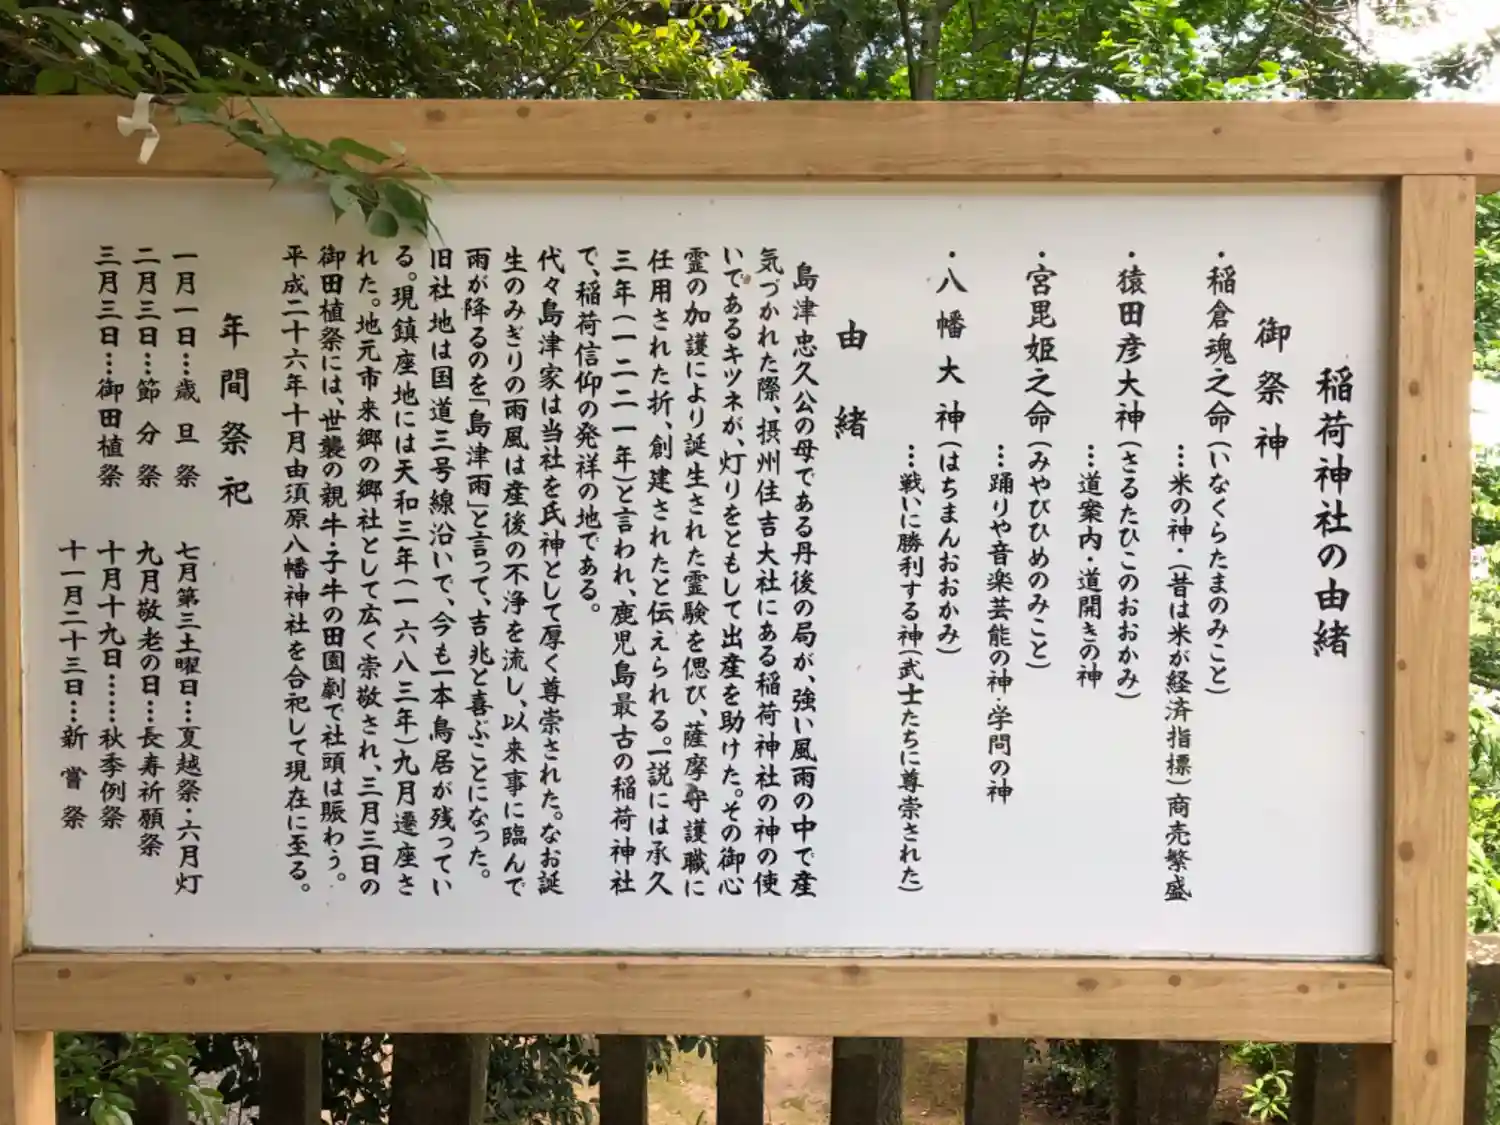 稲荷神社の由緒
御祭神
・稲倉魂之命（いなくらたまのみこと）
…米の神・（昔は米が経済指標）商売繁盛
・猿田彦大神（さるたひこのおおかみ）
…道案内・道開きの神
・宮毘姫之命（みやびひめのみこと）
…踊りや音楽芸能の神・学問の神
・八幡大神（はちまんおおかみ）
…戦いに勝利する神（武士たちに尊崇された）
由緒
島津忠久公の母である丹後の局が、強い風雨の中で産
気づかれた際、摂州住吉大社にある稲荷神社の神の使
いであるキツネが、灯りをともして出産を助けた。その御心
霊の加護により誕生された霊験を偲び、薩摩守護職に
任用された折、創建されたと伝えられる。一説には承久
三年（一二二一年）と言われ、鹿児島最古の稲荷神社
で、稲荷信仰の発祥の地である。
代々島津家は当社を氏神として厚く尊崇された。なお誕
生のみぎりの雨風は産後の不浄を流し、以来事に臨んで
雨が降るのを「島津雨」と言って、吉兆と喜ぶことになった。
旧社地は国道三号線沿いで、今も一本鳥居が残ってい
る。現鎮座地には天和三年（一六八三年）九月遷座さ
れた。地元市来郷の郷社として広く崇敬され、三月三日の
御田植祭には、世襲の親牛・子牛の田園劇で社頭は賑わう。
平成二十六年十月由須原八幡神社を合祀して現在に至る。
年間祭祀
一月一日…歳旦祭
二月三日…節分祭
三月三日…御田植祭
七月第三土曜日…夏越祭・六月灯
九月敬老の日…長寿祈願祭
十月十九日……秋季例祭
十一月二十三日…新嘗祭